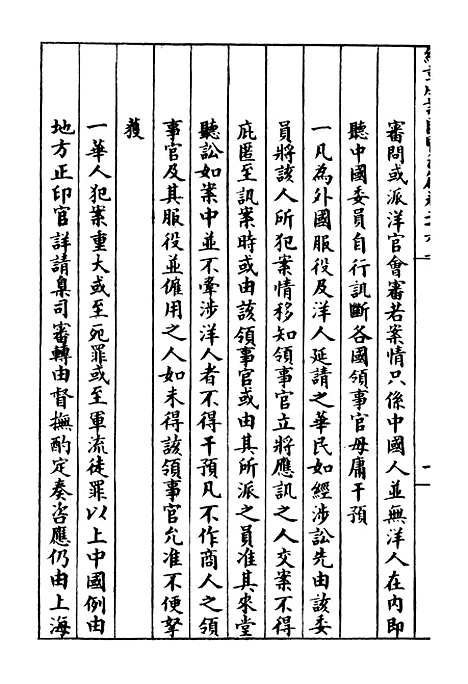 審問或派洋官會審若案情只係中國人並無洋人在內即
聽中國委員自行訊斷各國領事官毋庸干預
一凡為外國服役及洋人延請之華民如經涉訟先由該委
員將該人所犯案情移知領事官立將應訊之人交案不得
庇匿至訊案時或由該領事官或由其所派之員准其來堂
聽訟如案中並不牽涉洋人者不得干預凡不作商人之領
事官及其服役並僱用之人如未得該領事官允准不便拏
獲
一華人犯案重大或至死罪或至軍流徒罪以上中國例由
地方正印官詳請臬司審轉由督撫酌定奏咨應仍由上海